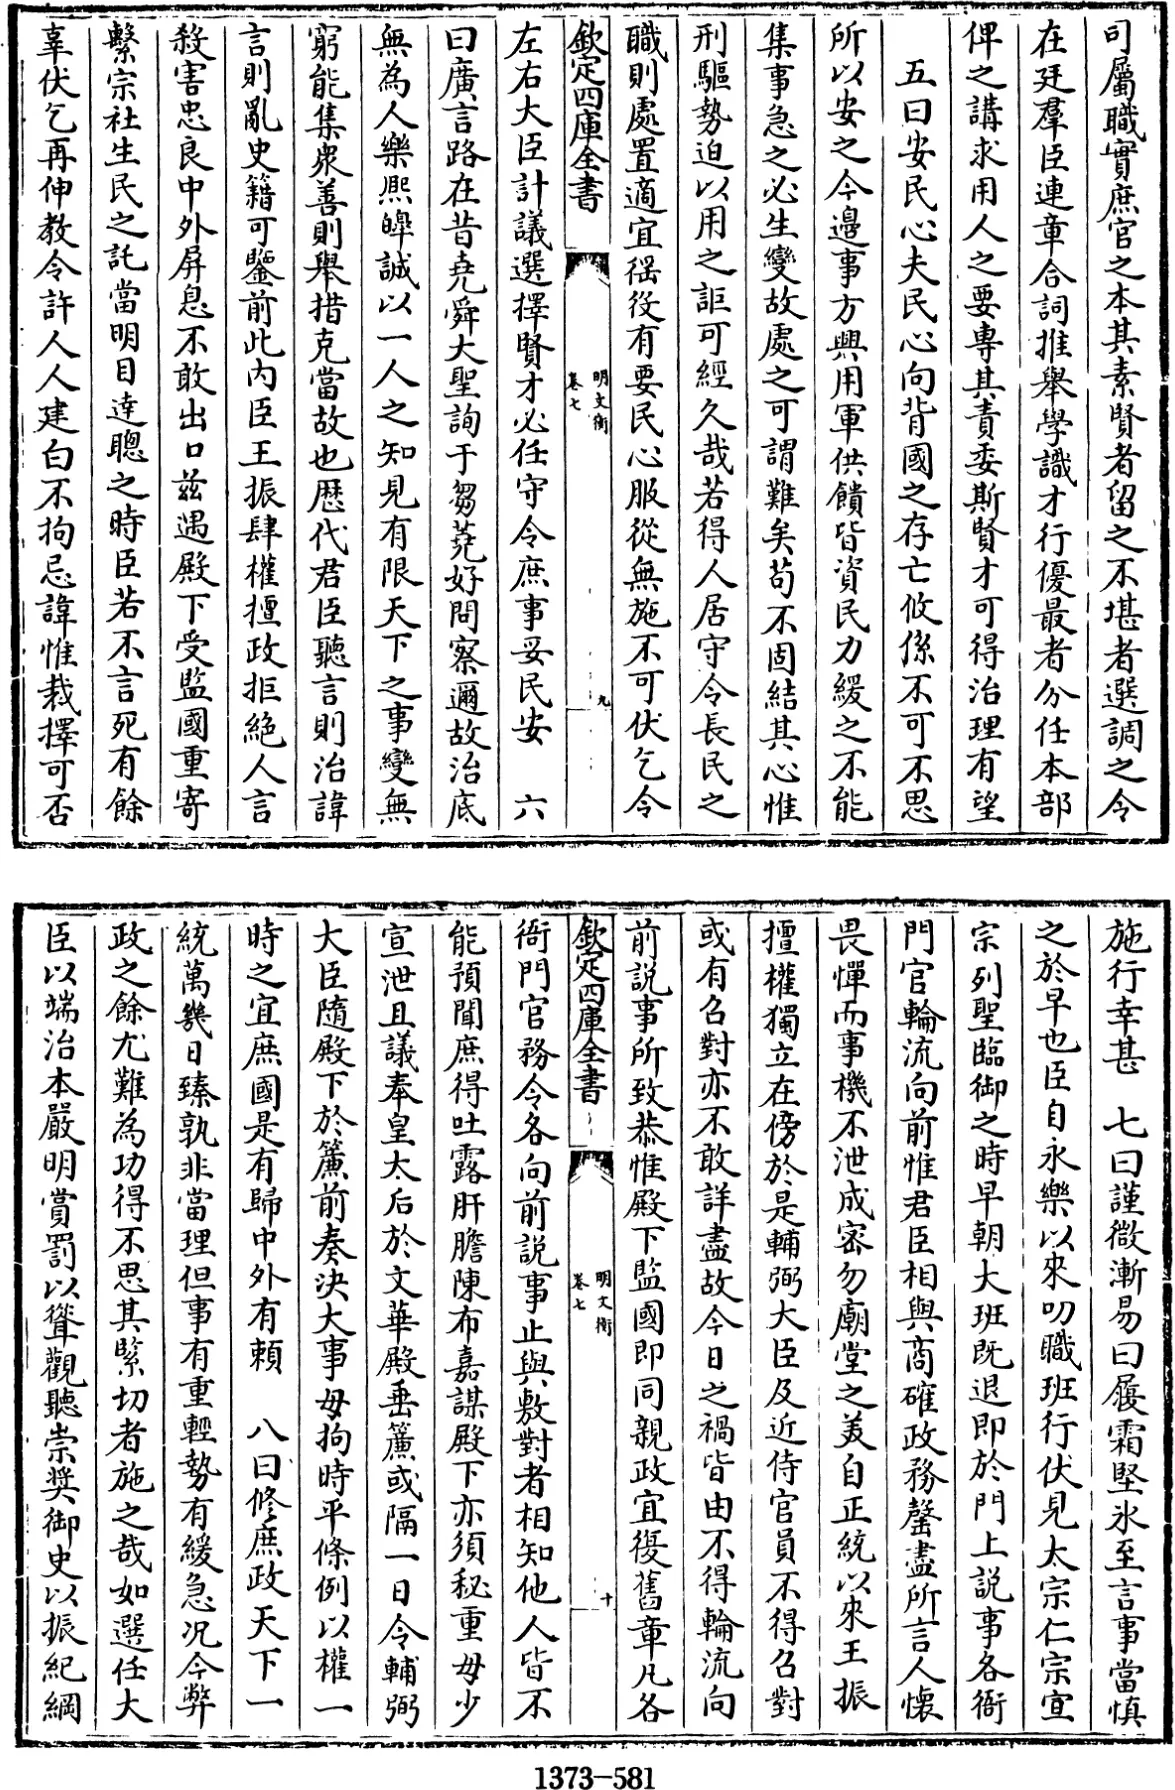 司屬職實庶官之本其素賢者留之不堪者選調之令
在廷羣臣連章合詞推舉學識才行優最者分任本部
俾之講求用人之要專其責委斯賢才可得治理有望
五曰安民心夫民心向背國之存亡攸係不可不思
所以安之今邊事方興用軍供饋皆資民力緩之不能
集事急之必生變故處之可謂難矣苟不固結其心惟
刑驅勢迫以用之詎可經久哉若得人居守令長民之
職則處置適宜徭役有要民心服從無施不可伏乞令
欽定四庫全書
明文衡
卷七
九
左右大臣計議選擇賢才必任守令庶事妥民安　六
曰廣言路在昔堯舜大聖詢于芻蕘好問察邇故治底
無為人樂熙皥誠以一人之知見有限天下之事變無
窮能集衆善則舉措克當故也歴代君臣聽言則治諱
言則亂史籍可鑒前此内臣王振肆權擅政拒絶人言
殺害忠良中外屏息不敢出口兹遇殿下受監國重寄
繫宗社生民之託當明目達聰之時臣若不言死有餘
辜伏乞再伸教令許人人建白不拘忌諱惟裁擇可否
施行幸甚　七曰謹微漸易曰履霜堅氷至言事當慎
之於早也臣自永樂以來叨職班行伏見太宗仁宗宣
宗列聖臨御之時早朝大班既退即於門上説事各衙
門官輪流向前惟君臣相與商確政務罄盡所言人懐
畏憚而事機不泄成密勿廟堂之美自正統以來王振
擅權獨立在傍於是輔弼大臣及近侍官員不得召對
或有召對亦不敢詳盡故今日之禍皆由不得輪流向
前説事所致恭惟殿下監國即同親政宜復舊章凡各
欽定四庫全書
明文衡
卷七
十
衙門官務令各向前説事止與敷對者相知他人皆不
能預聞庶得吐露肝膽陳布嘉謀殿下亦須秘重毋少
宣泄且議奉皇太后於文華殿垂簾或隔一日令輔弼
大臣隨殿下於簾前奏決大事毋拘時平條例以權一
時之宜庶國是有歸中外有頼　八曰修庶政天下一
統萬幾日臻孰非當理但事有重輕勢有緩急况今弊
政之餘尤難為功得不思其緊切者施之哉如選任大
臣以端治本嚴明賞罰以聳觀聽崇奬御史以振紀綱
1373-581